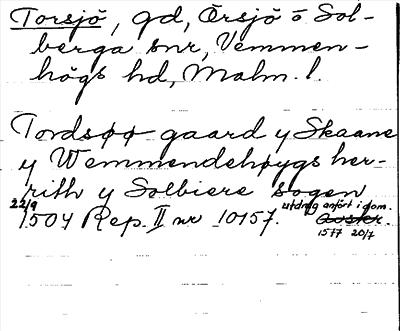 Torsjö, gd, Örsjö o Sol-
berga snr, Vemmen-
högs hd, Malm. l.
Tordsøø gaard y Skaane
y Wemmendehøygs her-
rith y Solbiere sogen
22/9 1504 Rep. II nr 10157. utdrag anfört i dom.
1577 20/7